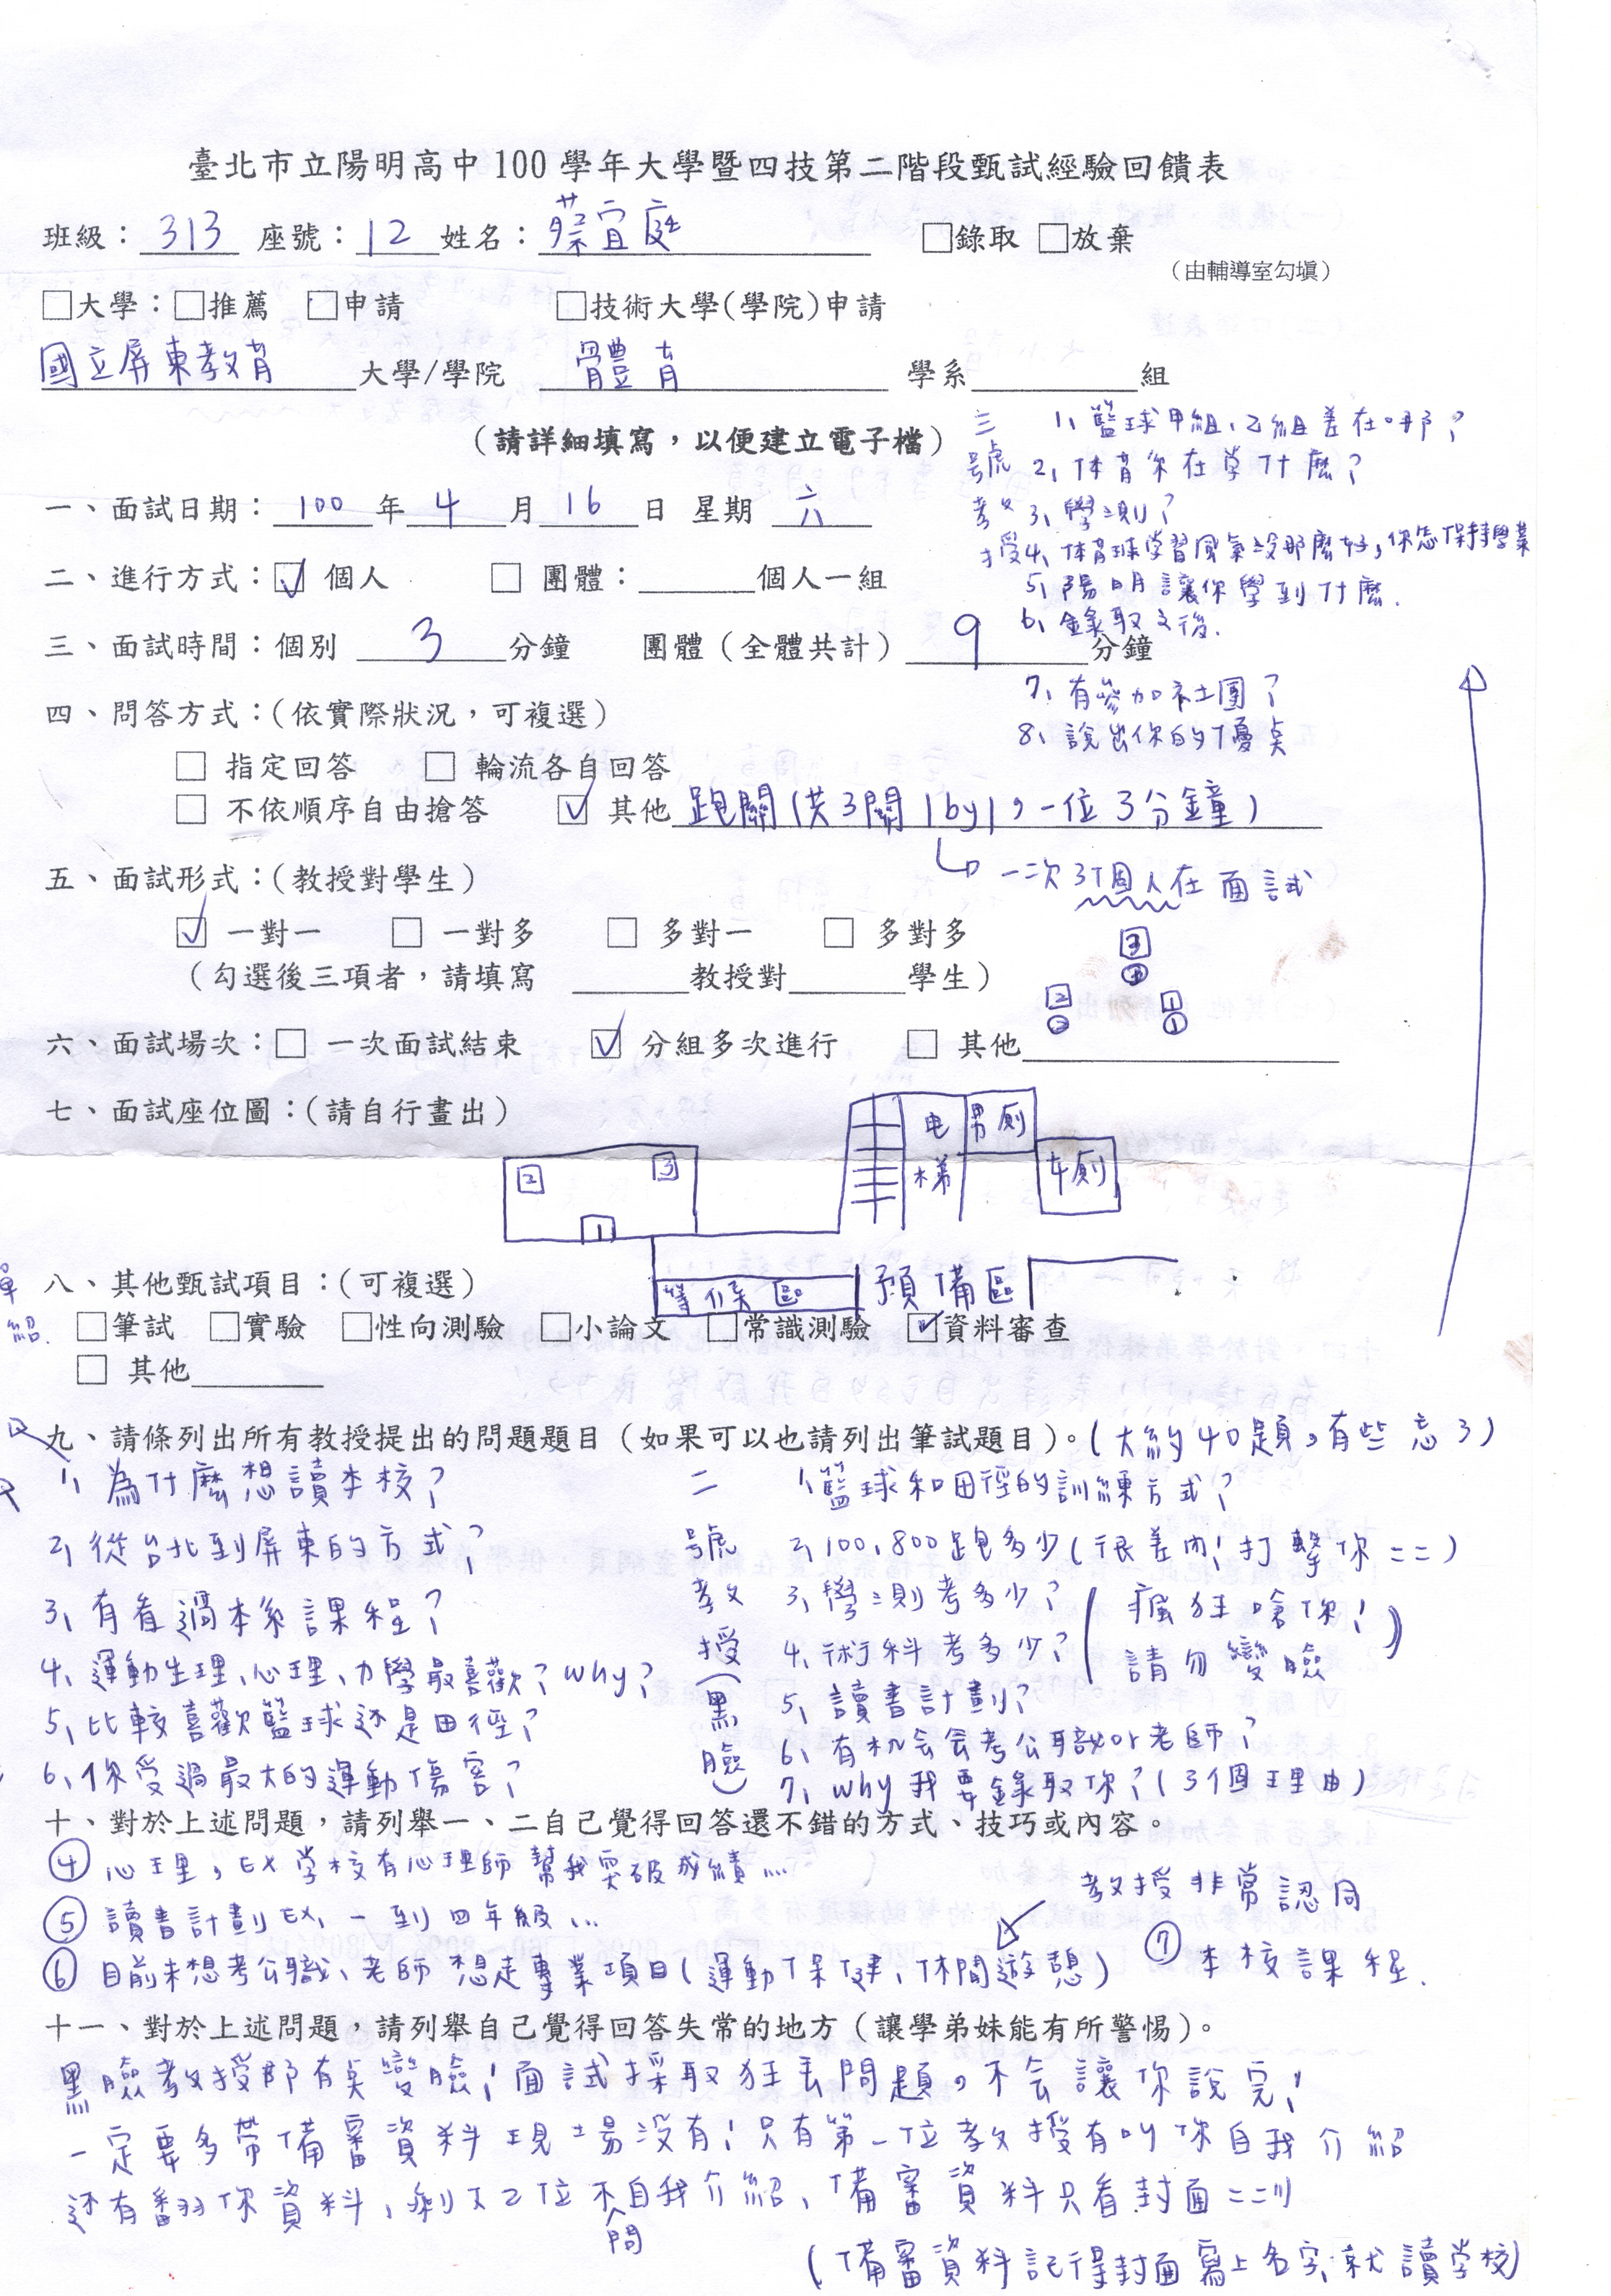 臺北市立陽明高中100學年大學暨四技第二階段甄試經驗回饋表
班級：313 座號：12 姓名：蔡宜庭 □錄取 □放棄
（由輔導室勾填）
□大學：□推薦 □申請 □技術大學(學院)申請
國立屏東教育大學/學院 體育 學系______組
（請詳細填寫，以便建立電子檔）
三號教授
1、籃球甲組、乙組差在哪？
2、体育你在学什麼？
3、學測？
4、体育球学習風氣沒那麼好，你怎保持學業
5、陽明讓你學到什麼.
6、錄取之後.
7、有參加社團？
8、說出你的優点
一、面試日期：100年4月16日 星期 六
二、進行方式：☑ 個人 □ 團體：______個人一組
三、面試時間：個別 3 分鐘 團體（全體共計）9分鐘
四、問答方式：(依實際狀況，可複選)
□ 指定回答 □ 輪流各自回答
□ 不依順序自由搶答 ☑ 其他 跑關(共3關1by1，一位3分鐘)
一次3個人在面試
五、面試形式：(教授對學生)
☑ 一對一 □ 一對多 □ 多對一 □ 多對多
（勾選後三項者，請填寫 ______教授對______學生）
3
3
2 1
2 1
六、面試場次：□ 一次面試結束 ☑ 分組多次進行 □ 其他______
七、面試座位圖：(請自行畫出)
电梯 男廁
女廁
2 3
1
等候區 預備區
八、其他甄試項目：(可複選)
□筆試 □實驗 □性向測驗 □小論文 □常識測驗 ☑資料審查
□ 其他______
九、請條列出所有教授提出的問題題目（如果可以也請列出筆試題目）。(大約40題，有些忘了)
1、為什麼想讀本校？
2、從台北到屏東的方式？
3、有看過本系課程？
4、運動生理、心理、力學最喜歡？why？
5、比較喜歡籃球还是田徑？
6、你受過最大的運動傷害？
二號教授(黑臉)
1、籃球和田徑的訓練方式？
2、100、800跑多少(很差內！打擊你==)
3、學測考多少？
4、術科考多少？
(瘋狂嗆你！請勿變臉)
5、讀書計劃？
6、有机会会考公職or老師？
7、why我要錄取你？(3個理由)
十、對於上述問題，請列舉一、二自己覺得回答還不錯的方式、技巧或內容。
④ 心理，EX学校有心理師幫我突破成績…
⑤ 讀書計劃EX、一到四年級…
教授非常認同
⑥ 目前未想考公職、老師想走專業項目(運動保健、休閒遊憩) ⑦ 本校課程.
十一、對於上述問題，請列舉自己覺得回答失常的地方（讓學弟妹能有所警惕）。
黑臉教授那有点變臉！面試採取狂丟問題，不会讓你說完！
一定要多帶備審資料現場沒有！只有第一位教授有叫你自我介紹
还有翻你資料，剩下2位不問自我介紹、備審資料只看封面==!!
(備審資料記得封面寫上名字、就讀学校)